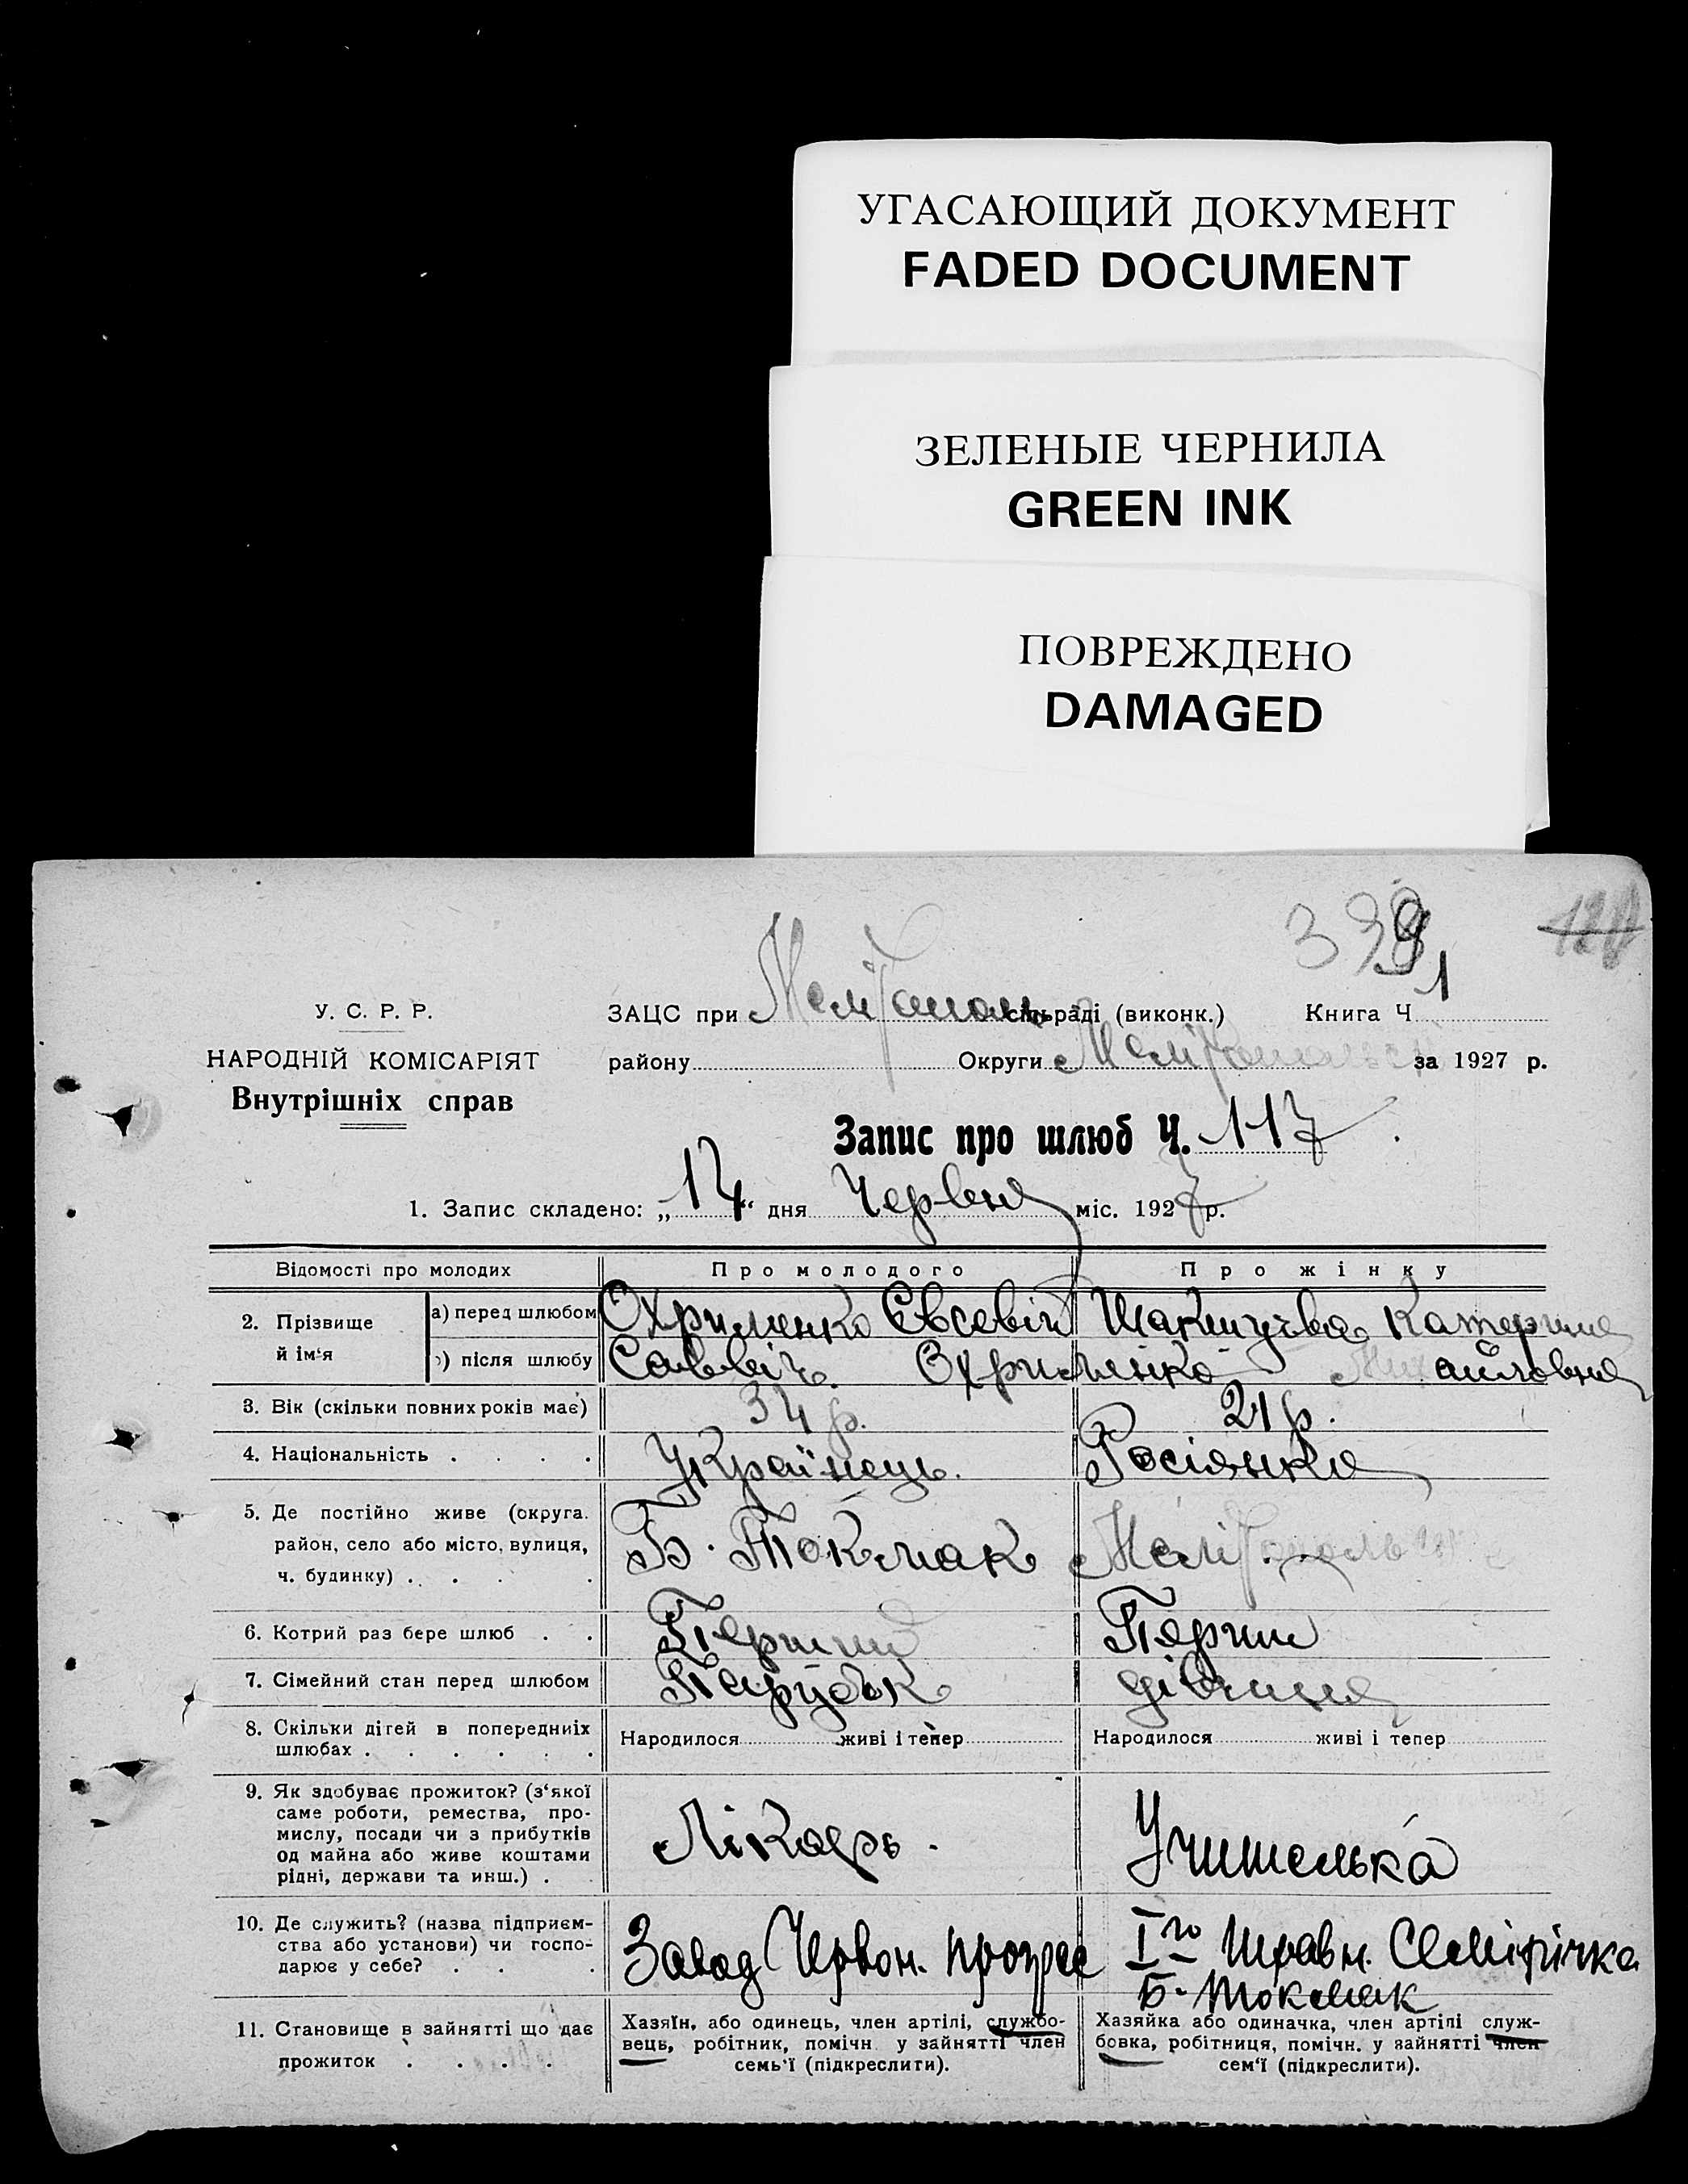 УГАСАЮЩИЙ ДОКУМЕНТ
FADED DOCUMENT
ЗЕЛЕНЫЕ ЧЕРНИЛА
GREEN INK
ПОВРЕЖДЕНО
DAMAGED
У. С. Р. Р.
НАРОДНІЙ КОМІСАРІЯТ
Внутрішніх справ
ЗАЦС при Мелітополь сільраді (виконк.) Книга Ч 1
району Округи за 1927 р.
Запис про шлюб Ч. 117
1. Запис складено: „14“ дня Червня міс. 1927 р.
Відомості про молодих Про молодого Про жінку
2. Прізвище й ім‘я
а) перед шлюбом Охрименко Євсевій Катерина
в) після шлюбу Саввіч. Охрименко Михайловна
3. Вік (скільки повних років має) 34 р. 21 р.
4. Національність . . . . Українець. Росіянка
5. Де постійно живе (округа.
район, село або місто, вулиця,
ч. будинку) . . . . Б. Токмак Мелітополь
6. Котрий раз бере шлюб . . Перший Перши
7. Сімейний стан перед шлюбом Парубок дівчина
8. Скільки дітей в попередниіх
шлюбах . . . . . . Народилося живі і тепер Народилося живі і тепер
9. Як здобуває прожиток? (з‘якої
саме роботи, ремества, про-
мислу, посади чи з прибутків
од майна або живе коштами
рідні, держави та инш.) . Лікарь. Учителька
10. Де служить? (назва підприєм-
ства або установи) чи госпо-
дарює у себе? . . . Завод Червон. прогрес І го Травн. Семірічка
Б. Токмак
11. Становище в зайнятті що дає
прожиток . . . .
Хазяїн, або одинець, член артілі, службо-
вець, робітник, помічн. у зайнятті член
семь‘ї (підкреслити).
Хазяйка або одиначка, член артілі служ-
бовка, робітниця, помічн. у зайнятті член
сем‘ї (підкреслити).